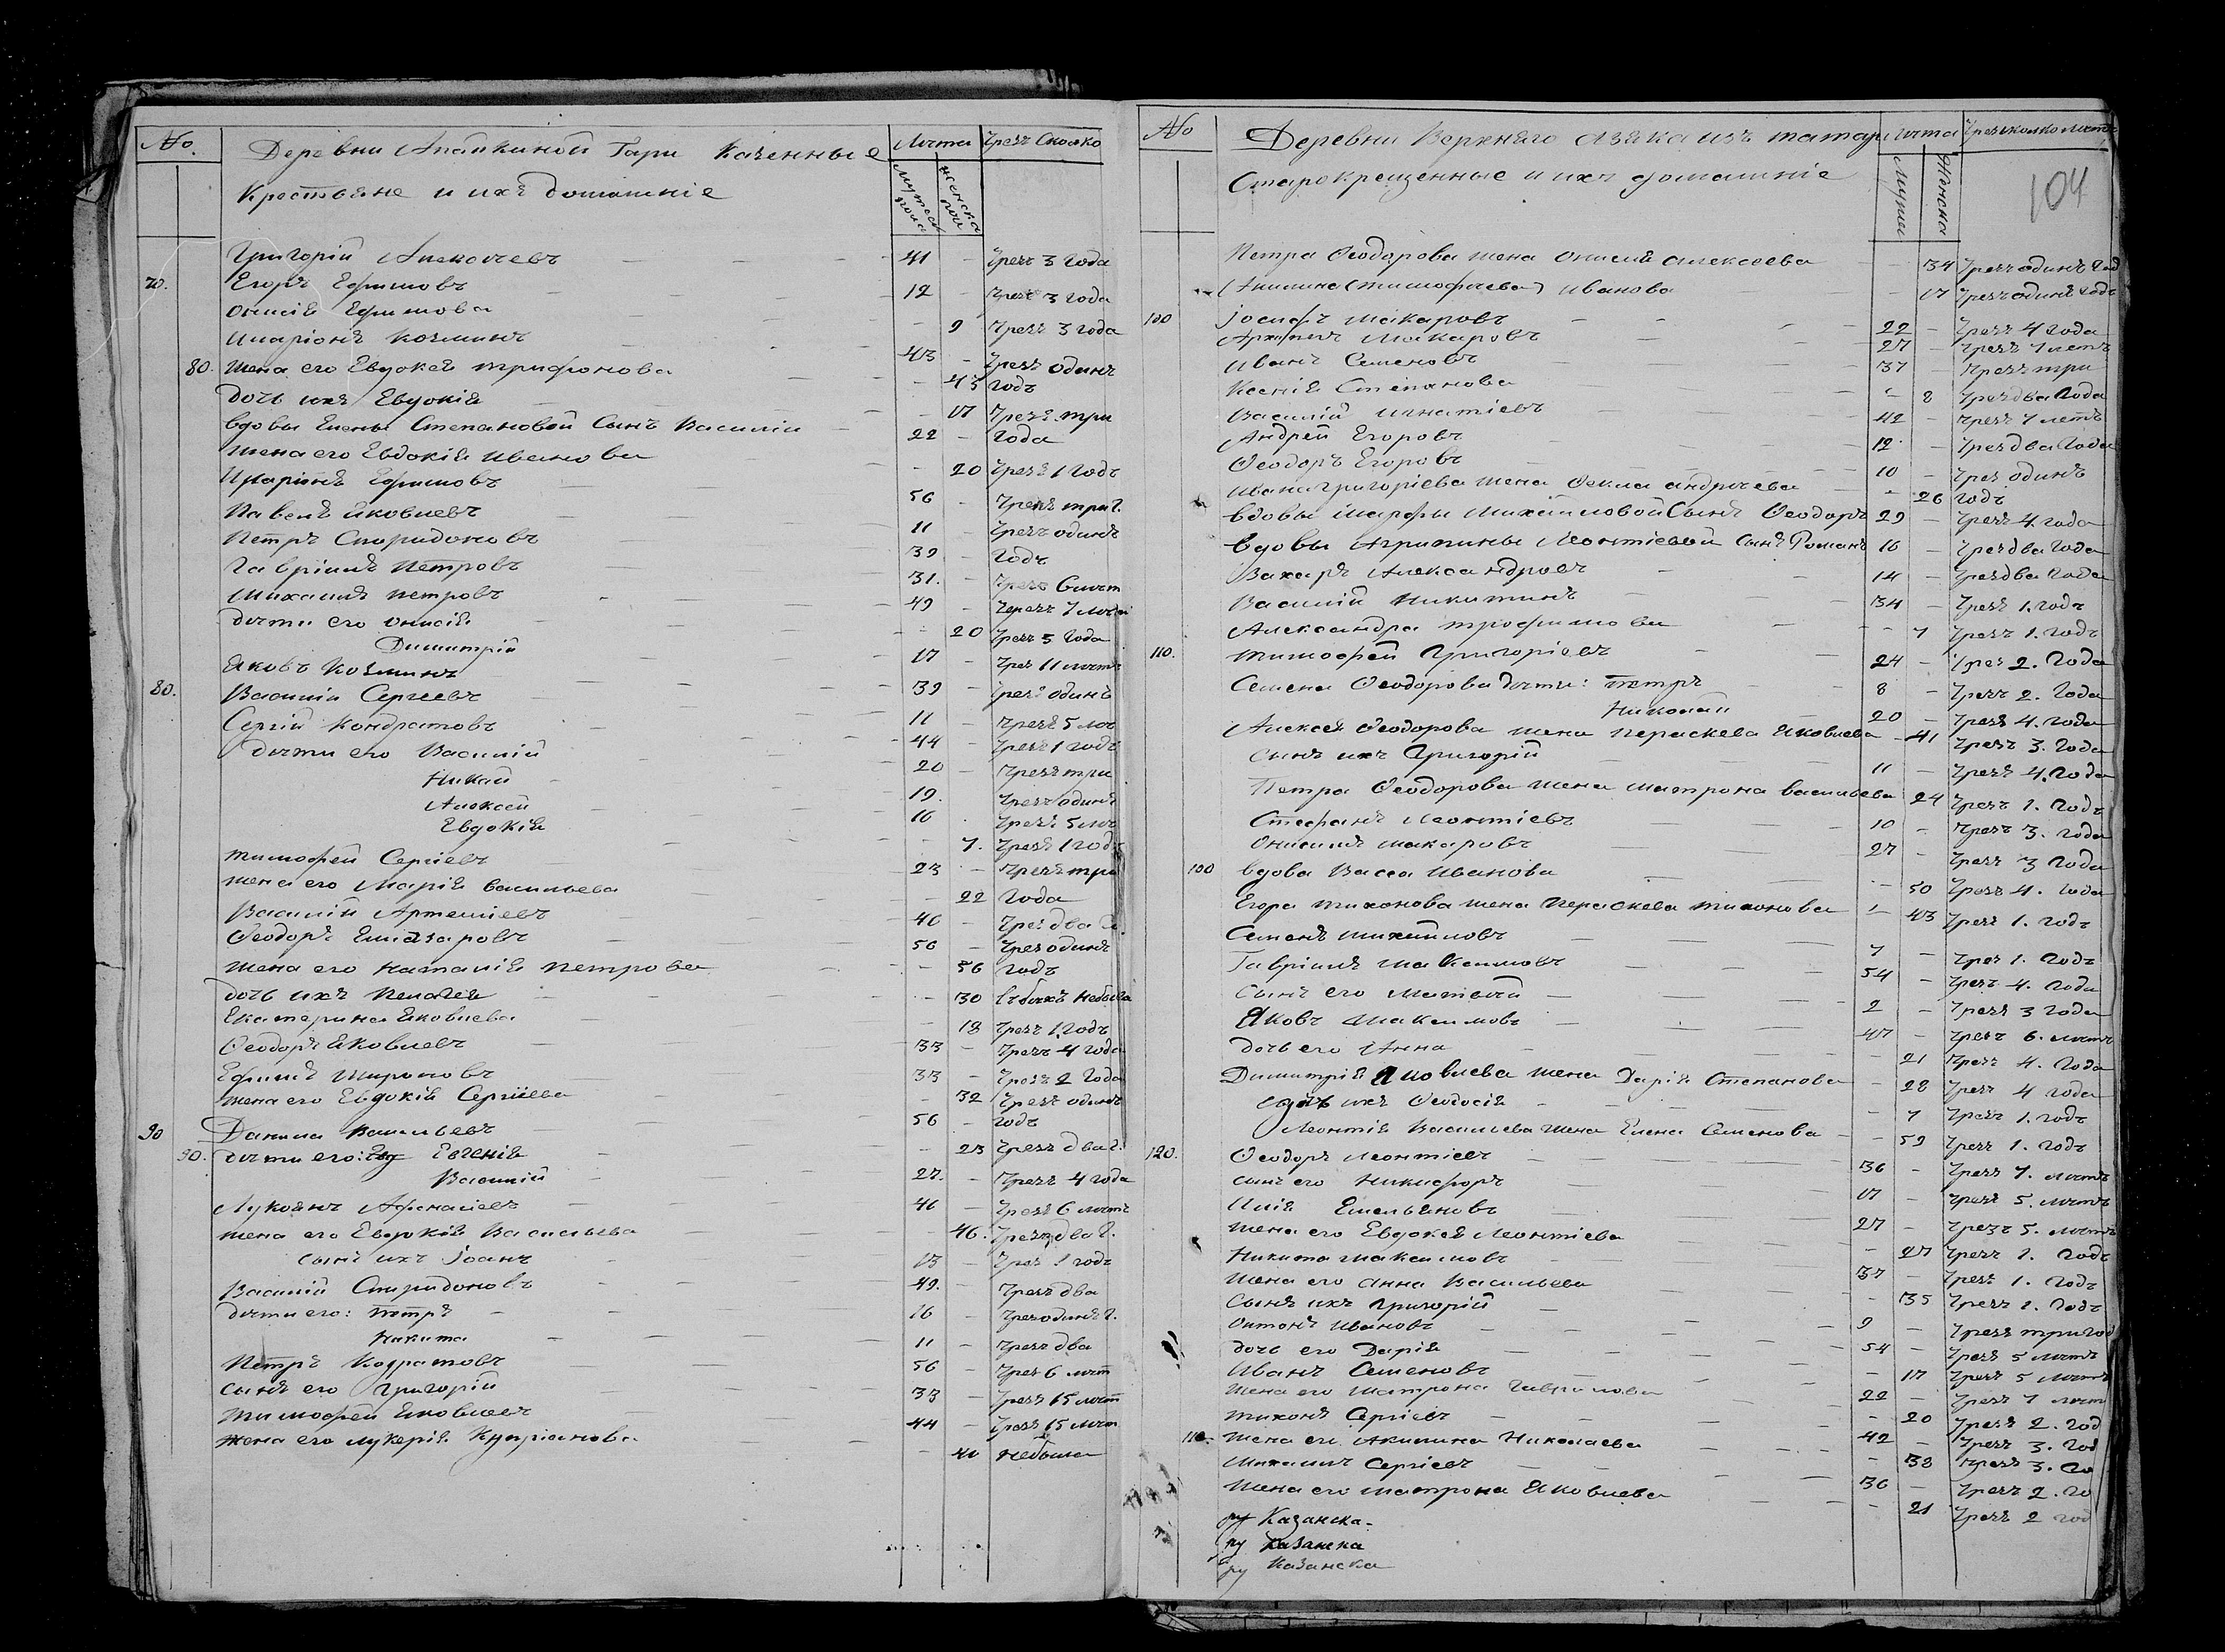 № Деревни Апайкиной Гари Казенные Лѣта Чрезъ Сколко
Крестьяне и ихъ домашніе Мужеска пола женска пола
Григорій Алексѣевъ 41 - Чрезъ 3 года
70. Егоръ Ефимовъ 12 - Чрезъ 3 года
Онисія Ефимова - 9 Чрезъ 3 года
Иларіонъ Козминъ 43 - Чрезъ одинъ
80. Жена его Евдокея Трифонова - 43 годъ
дочь ихъ Евдокія - 17 Чрезъ три
вдовы Елены Степановой Сынъ Василій 22 - года
Жена его Евдокія Иванова - 20 Чрезъ 1 годъ
Иларіонъ Ефимовъ 56 - Чрезъ три г.
Павелъ Яковлевъ 11 - Чрезъ одинъ
Петръ Спиридоновъ 39 - годъ
Гавріилъ Петровъ 31. - Чрезъ 6 лѣт
Михаилъ Петровъ 49 - Черезъ 7 лѣтъ
дѣти его Онисія - 20 Чрезъ 3 года
Димитрій 17 - Чрез 11 лѣтъ
Яковъ Козминъ 39 - Чрезъ одинъ
80. Василій Сергеевъ 11 - Чрезъ 5 лѣт
Сергій Кондратовъ 44 - Чрезъ 1 годъ
дѣти его Василій 20 - Чрезъ три
Никол 19. Чрезъ одинъ
Алексѣй 16 . Чрезъ 5 лѣт
Евдокія - 7. Чрезъ 1 годъ
Тимофей Сергіевъ 23 - Чрезъ три
жена его Марія Васильева - 22 года
Василій Артеміевъ 40 - Чрез два
Ѳеодоръ Елиазаровъ 56 - Чрез одинъ
жена его Наталія Петрова - 56 годъ
дочь ихъ Пелагея - 30 небыла
Екатерина Яковлева - 18 Чрезъ 1 годъ
Ѳеодоръ Яковлевъ 33 - Чрезъ 4 года
Ефимъ Мироновъ 33 - Чрезъ 2 года
жена его Евдокія Сергіева - 32 Чрезъ одинъ
90 Данила Васильевъ 56 - годъ
90. дѣти его: Евгенія - 23 Чрезъ два г.
Василій 27. - Чрезъ 4 года
Лукоянъ Афанасіевъ 46 - Чрезъ 6 лѣтъ
жена его Евдокія Васильева - 46. Чрезъ два г.
сынъ ихъ Іоанъ 13 - Чрез 1 годъ
Василій Спиридоновъ 49. - Чрезъ два
дѣти его: Петръ 16 - Чрез одинъ г.
Никита 11 - Чрезъ два
Петръ Кодратовъ 56 - Чрез 6 лѣт
сынъ его Григорій 33 - Чрезъ 15 лѣт
Тимофей Яковлевъ 44 - Чрезъ 15 лѣт
жена его Лукерія Купріанова - 40 небыла
№ Деревни Верхняго Азяка изъ татаръ Лѣта Чрезъ сколко лѣтъ
Старокрещенные и ихъ домашніе Мужска Женска 104
Петра Ѳеодорова жена Онисія Алексѣева - 34 Чрезъ одинъ год
Акилина (Тимофѣева) Иванова - 17 Чрезъ одинъ годъ
100 Іосифъ Макаровъ 22 - Чрезъ 4 года
Архипъ Макаровъ 27 - Чрезъ 7 летъ
Иванъ Семеновъ 37 - Чрезъ три
Ксенія Степанова - 8 Чрез два года
Василій Игнатіевъ 42 - Чрезъ 7 летъ
Андрей Егоровъ 12 - Чрез два года
Ѳеодоръ Егоровъ 10 - Чрез одинъ
Ивана Григоріева жена Ѳекла Андрѣева - 26 годъ
вдовы Марфы Михайловой Сынъ Ѳеодоръ 29 - Чрезъ 4 года
вдовы Агрипины Леонтіевой сынъ Романъ 16 - Чрез два года
Захаръ Александровъ 14 - Чрез два года
Василій Никитинъ 34 - Чрезъ 1. годъ
Александра Трофимова - 7 Чрезъ 1. годъ
110. Тимофей Григоріевъ 24 - Чрез 2. года
Семена Ѳеодорова дѣти: Петръ 8 - Чрезъ 2. года
Николай 20 - Чрезъ 4. года
Алексея Ѳеодорова жена Параскева Яковлева - 41 Чрезъ 3. года
сынъ ихъ Григорій 11 - Чрезъ 4. года
Петра Ѳеодорова жена Матрона Васильева 24 Чрезъ 1. годъ
Стефанъ Леонтіевъ 10 - Чрезъ 3. года
Онисимъ Макаровъ 27 - Чрезъ 3 года
100 вдова Васса Иванова - 50 Чрезъ 4. года
Егора Тихонова жена Параскева Тихонова - 43 Чрезъ 1. годъ
Семенъ Михайловъ 7 - Чрез 1. годъ
Гавріилъ Максимовъ 54 - Чрезъ 4. года
Сынъ его Матвѣй 2 - Чрезъ 3 года
Яковъ Максимовъ 47 - Чрезъ 6. лѣтъ
дочь его Анна - 21 Чрезъ 4. года
Димитрія Яковлева жена Дарія Степанова - 28 Чрезъ 4 года
ихъ Ѳеодосія - 7 Чрезъ 1. годъ
Леонтія Васильева жена Елена Семенова - 59 Чрезъ 1. годъ
120. Ѳеодоръ Леонтіевъ 36 - Чрезъ 7. лѣтъ
сынъ его Никифоръ 17 - Чрезъ 5. лѣтъ
Илія Емельяновъ 27 - Чрезъ 5. лѣтъ
жена его Евдокея Леонтіева - 27 Чрезъ 1. годъ
Никита Максимовъ 37 - Чрезъ 1. годъ
жена его Анна Васильева - 35 Чрезъ 1. годъ
сынъ ихъ Григорій 9 - Чрезъ три год
Антонъ Ивановъ 54 - Чрезъ 5 лѣтъ
дочь его Дарія - 17 Чрезъ 5 лѣтъ
Иванъ Семеновъ 22 - Чрезъ 7 лѣт
жена его Матрона Гаврилова - 20 Чрезъ 2. год
Тихонъ Сергіевъ 42 - Чрезъ 3. год
110. жена его Акилина Николаева - 38 Чрезъ 3. го
Михаилъ Сергіевъ 36 - Чрезъ 2. го
жена его Матрона Яковлева - 21 Чрезъ 2 год
ру Казанска
ру Казанска
ру Казанска